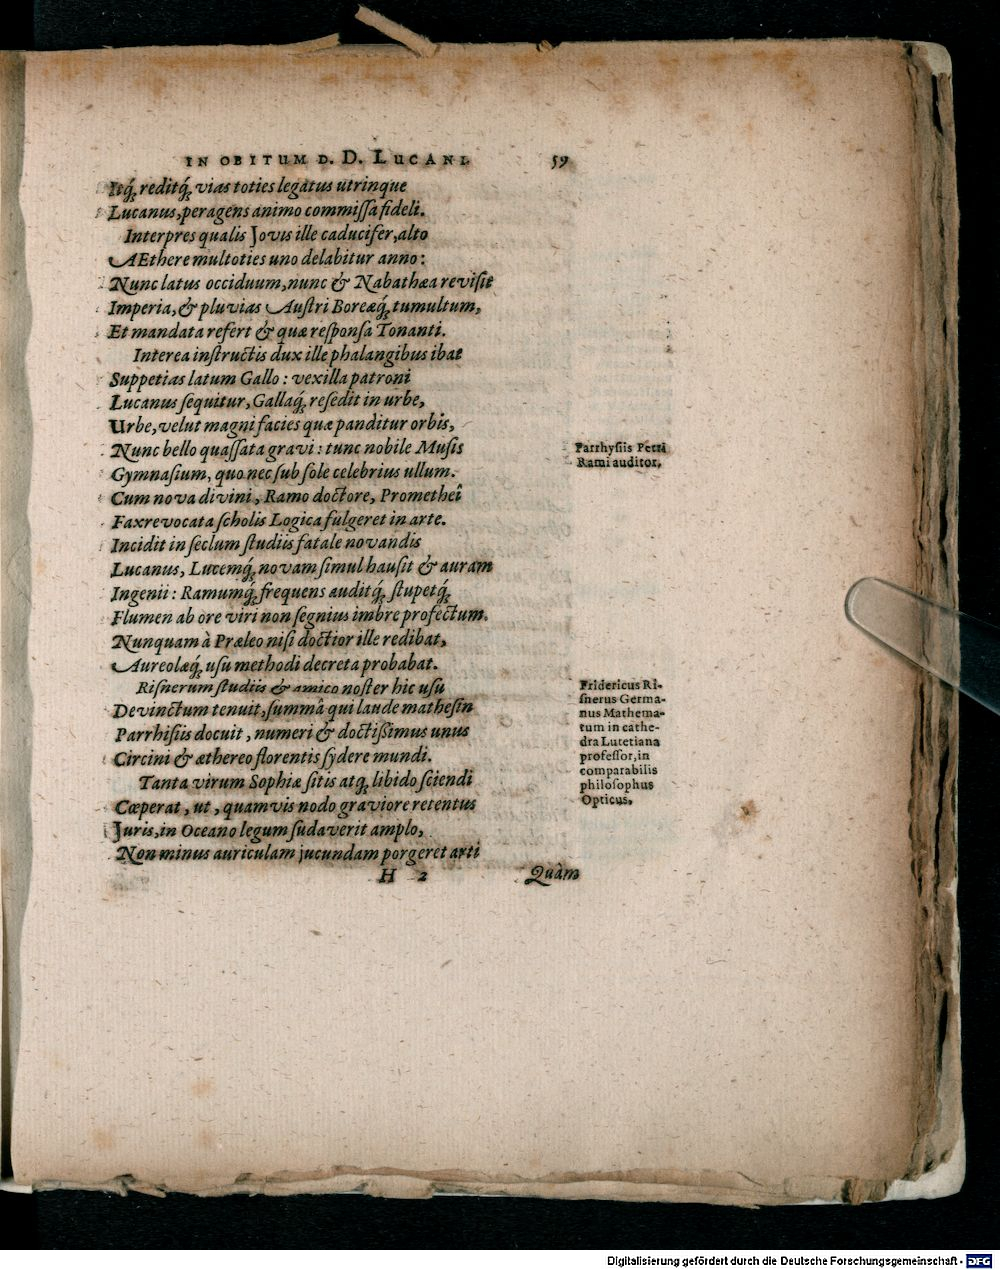 IN OBITUM D. D. LUCANI. 59
Itq́; reditq́; vias toties legatus utrinque
Lucanus, peragens animo commiſſa fideli.
Interpres qualis Jovis ille caducifer, alto
AEthere multoties uno delabitur anno:
Nunc latus occiduum, nunc & Nabathæa reviſit
Imperia, & pluvias Auſtri Boreæq́; tumultum,
Et mandata refert & quæ reſponſa Tonanti.
Interea inſtructis dux ille phalangibus ibat
Suppetias latum Gallo: vexilla patroni
Lucanus ſequitur, Gallaq́; reſedit in urbe,
Urbe, velut magni facies quæ panditur orbis,
Nunc bello quaſſata gravi: tunc nobile Muſis
Gymnaſium, quo nec ſub ſole celebrius ullum.
Cum nova divini, Ramo doctore, Promethei
Fax revocata ſcholis Logica fulgeret in arte.
Incidit in ſeclum ſtudiis fatale novandis
Lucanus, Lucemq́; novam ſimul hauſit & auram
Ingenii: Ramumq́; frequens auditq́; ſtupetq́;
Flumen ab ore viri non ſegnius imbre profectum.
Nunquam à Præleo niſi doctior ille redibat,
Aureolæq́; uſu methodi decreta probabat.
Riſnerum ſtudiis & amico noſter hic uſu
Devinctum tenuit, ſummâ qui laude matheſin
Parrhiſiis docuit, numeri & doctiſſimus unus
Circini & æthereo florentis ſydere mundi.
Tanta virum Sophiæ ſitis atq; libido ſciendi
Cæperat, ut, quamvis nodo graviore retentus
Juris, in Oceano legum ſudaverit amplo,
Non minus auriculam jucundam porgeret arti
H 2 Quàm
Parrhyſiis Petri
Rami auditor.
Fridericus Ri-
ſnerus Germa-
nus Mathema-
tum in cathe-
dra Lutetiana
profeſſor, in
comparabilis
philoſophus
Opticus.
Digitalisierung gefördert durch die Deutsche Forschungsgemeinschaft - DFG